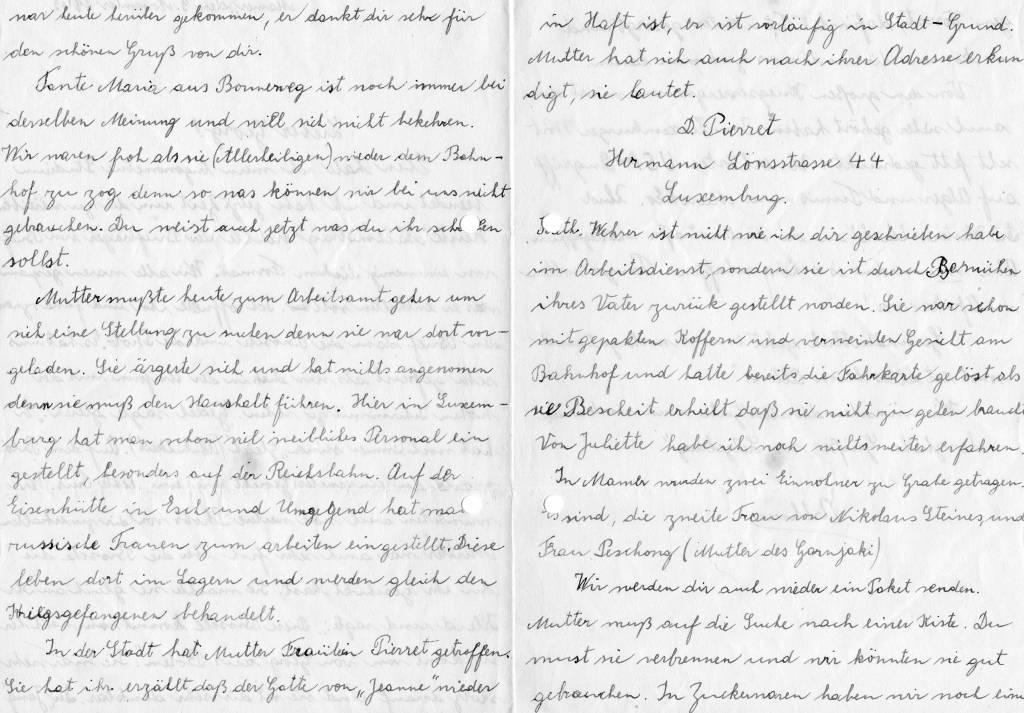 war heute herüber gekommen, er dankt dir sehr für
den schönen Gruß von dir.
Tante Maria aus Bonneweg ist noch immer bei
derselben Meinung und will sich nicht bekehren.
Wir waren froh als sie (Allerheiligen) wieder dem Bahn-
hof zu zog denn so was können wir bei uns nicht
gebrauchen. Du weist auch jetzt was du ihr
sollst.
Mutter mußte heute zum Arbeitsamt gehen um
sich eine Stellung zu suchen denn sie war dort vor-
geladen. Sie ärgerte sich und hat nichts angenomen
denn sie muß den Haushalt führen. Hier in Luxem-
burg hat man schon viel weibliches Personal ein
gestellt, besonders auf der Reichsbahn. Auf der
Eisenhütte in Esch und Umgegend hat man
russische Frauen zum arbeiten eingestellt. Diese
leben dort im Lagern und werden gleich den
Kriegsgefangenen behandelt.
In der Stadt hat Mutter Fräulein Pierret getroffen.
Sie hat ihr erzählt daß der Gatte von „Jeanne" wieder
in Haft ist, er ist vorläufig in Stadt-Grund.
Mutter hat sich auch nach ihrer Adresse erkun
digt, sie lautet.
D. Pierret
Hermann Lönsstrasse 44
Luxemburg.
Wehrer ist nicht wie ich dir geschrieben habe
im Arbeitsdienst, sondern sie ist durch Bemühen
ihres Vater zurück gestellt worden. Sie war schon
mit gepakten Koffern und verweinten Gesicht am
Bahnhof und hatte bereits die Fahrkarte gelöst als
sie Bescheit erhielt daß sie nicht zu gehen braucht
Von Juliette habe ich noch nichts weiter erfahren.
In Mamer wurden zwei Einwohner zu Grabe getragen.
Es sind, die zweite Frau von Nikolaus Steines, und
Frau Peschong (Mutter des Garnjaki)
Wir werden dir auch wieder ein Paket senden.
Mutter muß auf die Suche nach einer Kiste. Du
must sie verbrennen und wir könnten sie gut
gebrauchen. In Zuckerwaren haben wir noch eine